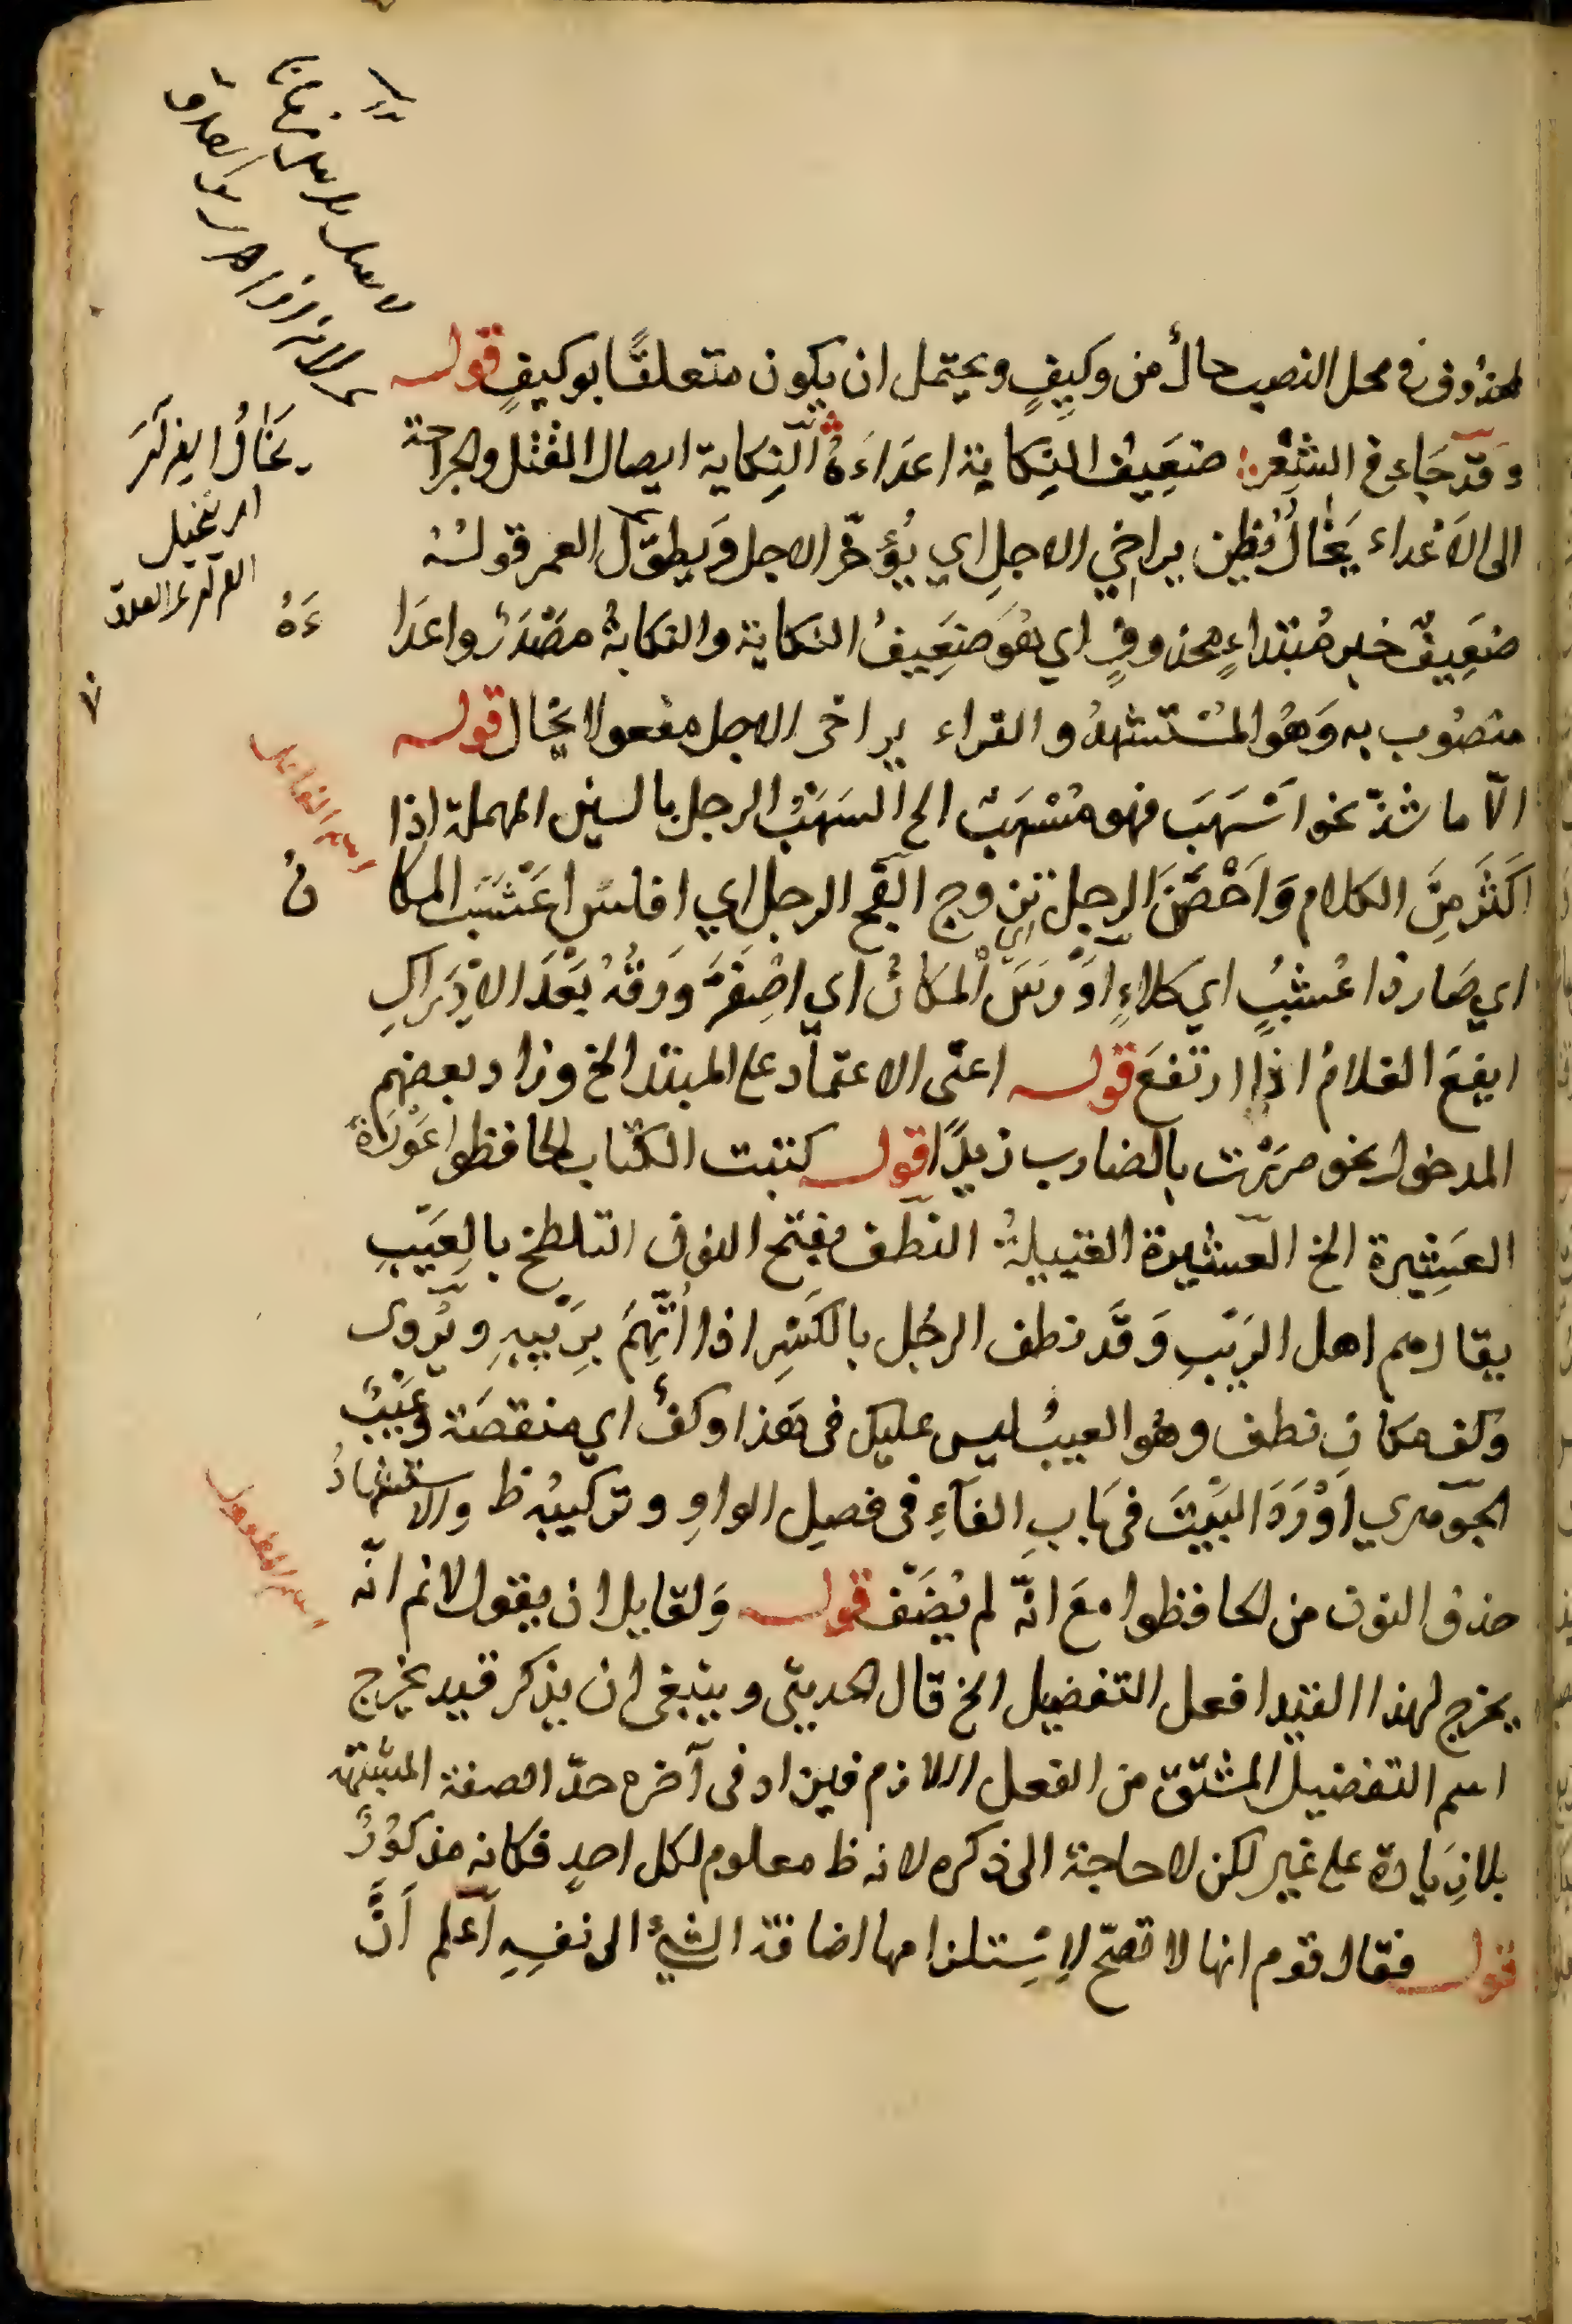 لمحذوف في محل النصب حالٌ من وكيفٍ ويحتمل ان يكون متعلقًا بوكيفٍ قوله
وقد جاء في الشعر ضعيف النكاية اعداءَهُ النِّكاية ايصال القتل والجراحة
الى الاَعداء يَخَالُ يُظن يراخي الاجل اي يُؤخّر الاجل ويطوّل العمر قولهُ
ضعيفُ خبر مُبتداءٍ محذوفٍ اي هُوَ ضعيفُ النكاية والنكايةُ مصْدَرٌ واعدَا
ءَهُ
منصُوب به وَهُو المُسْتشهدُ والفراء يراخى الاجل مفعولا يخال قوله
الّا ما شذّ نحو اَسْهَبَ فهو مُسْهَبٌ الخ اَسهَبَ الرجل بالسين المهملة اذا
اكثَرَ مِنَ الكلام وَاَحْصَنَ الرجل تزوج اَلْفَجَ الرجل اي افلس اعشَبَ المكا
نُ
اي صَار ذا عُشبٍ اي كلاءٍ اَوْرَسَ المكانُ اي اصفَرَّ وَرَقُهُ بَعْدَ الاِدْرَاكِ
ايفعَ الغلامُ اذا ارتفعَ قوله اعنى الاعتماد على المبتدا الخ وزاد بعضهم
المدخول نحو مررْت بالضارب زيدًا قوله كتبت الكتاب الحافظوا عَوْرَة
العَشِيرة الخ العَشيرة القبيلةُ النطَف بفتح النون التلطخ بالعَيْبِ
يقال هم اهل الرَيْبِ وَقَد نطف الرجُل بالكَسْرِ اذا اتُّهِمَ بِرَيبِهِ ويُروى
وكف مكان نطف وهُو العيبُ ليس عليك في هَذا وكفٌ اي منقصَة وَعَيْبٌ
الجوهري اَوْرَدَ البَيْتَ فى بَابِ الفآءِ فى فصل الواوِ وتركيبُه ظ والاستشهادُ
حذف النون من الحافظوا معَ انّه لم يُضَف قوله وَلقايل ان يقول لانم انّه
يخرج لهذا القيد افعل التفضيل الخ قال الحديثى وينبغى ان يذكر قيد يخرج
اسم التفضيل المشتق من الفعل اللازم فيزاد فى آخره حدّ الصفة المشبّهة
بلا زِيَادة على غير لكن لا حاجة الى ذكره لانه ظ معلوم لكل احدٍ فكانه مذكوْرٌ
قوله فقال قوم انها لا تصحّ لاِسْتلزامها اضافة الشئ الى نفسِهِ اَعلم اَنَّ
يَخَالُ الفرار
اسم الفاعل
اسم المفعول